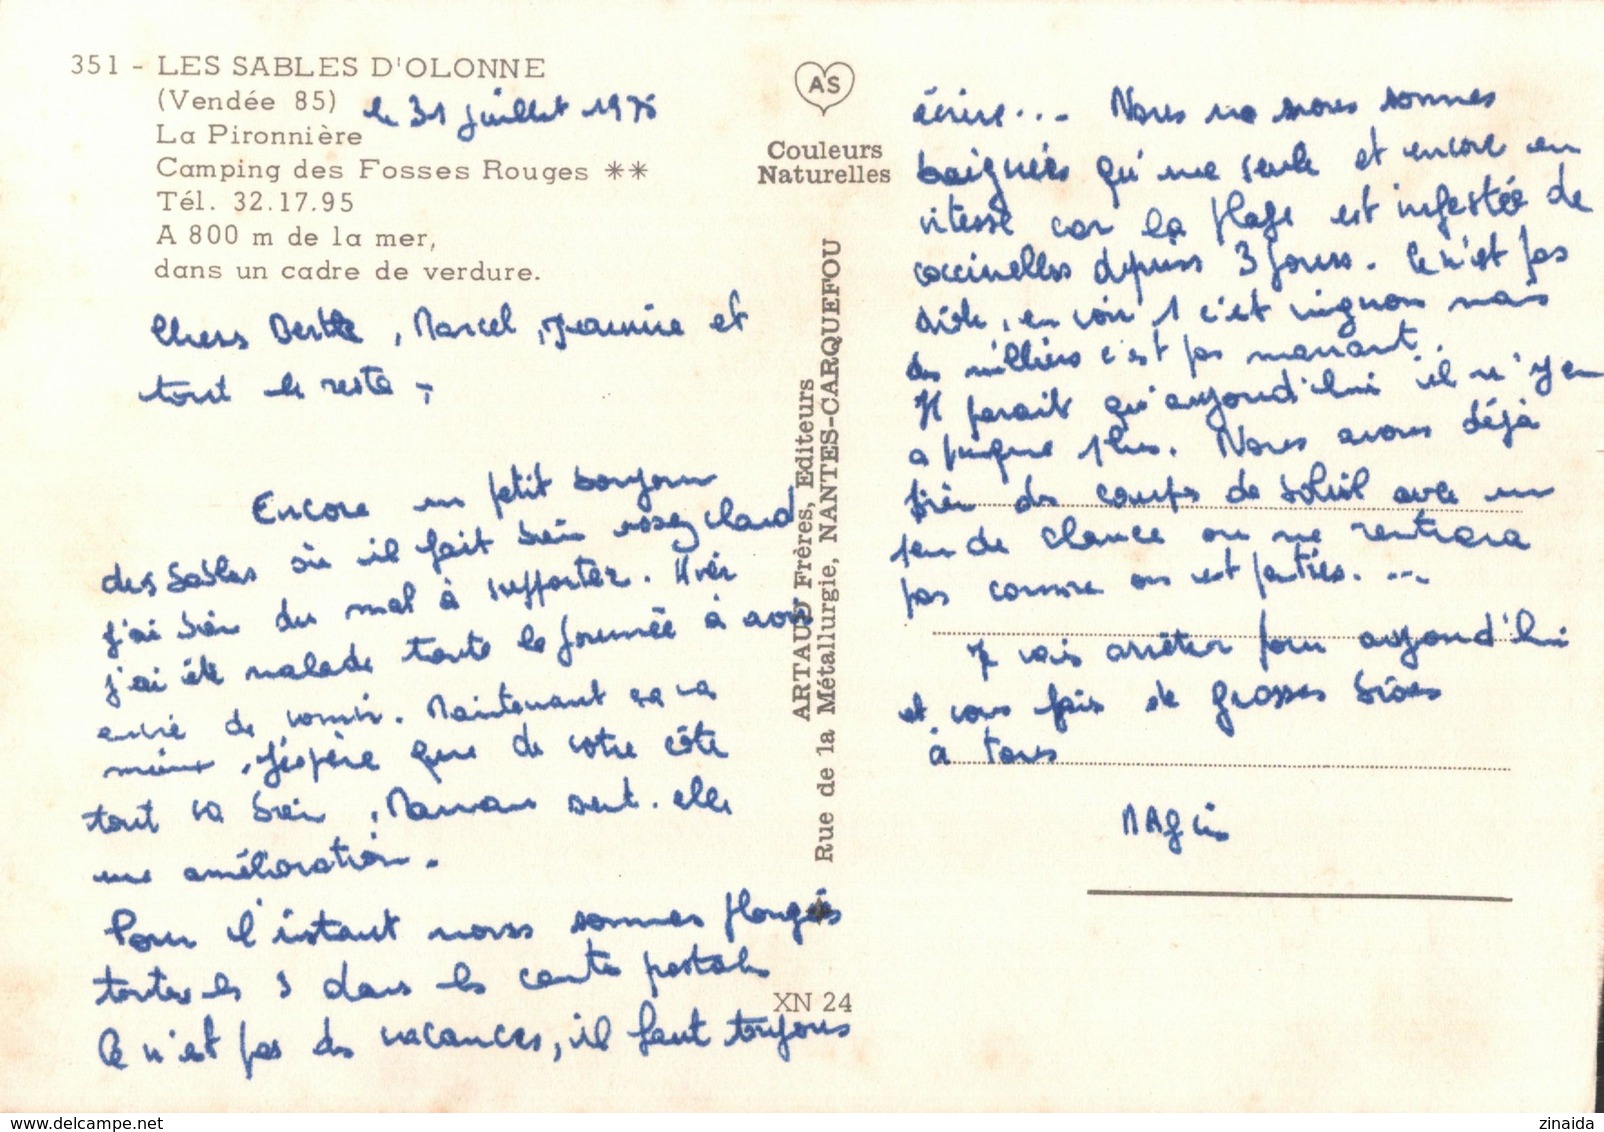 351 - LES SABLES D'OLONNE
(Vendée 85)
le 31 juillet 1976
La Pironnière
Camping des Fosses Rouges **
Tél. 32.17.95
A 800 m de la mer,
dans un cadre de verdure.
Chers Berthe, Marcel, Jeannine et
tout le reste,
Encore un petit bonjour
des Sables où il fait bien assez chaud
j'ai bien du mal à supporter. Hier
j'ai été malade toute la journée à avoir
envie de vomir. Maintenant ça va
mieux, j'espère que de votre côté
tout va bien, Maman sent-elle
une amélioration.
Pour l'instant nous sommes plongées
toutes les 3 dans les cartes postales
Ce n'est pas des vacances, il faut toujours
AS
Couleurs
Naturelles
ARTAUD Frères, Editeurs
Rue de la Métallurgie, NANTES-CARQUEFOU
XN 24
écrire... Nous ne nous sommes
baignées qu'une seule et encore en
vitesse car la plage est infestée de
coccinelles depuis 3 jours. Ce n'est pas
drôle, en voir 1 c'est mignon mais
des milliers c'est pas marrant.
Il parait qu'aujourd'hui il n'y en
a presque plus. Nous avons déjà
bien des coups de soleil avec un
peu de chance on ne rentrera
pas comme on est parties....
Je vais arrêter pour aujourd'hui
et vous fais de grosses bises
à tous
zinaida
delcampe.net